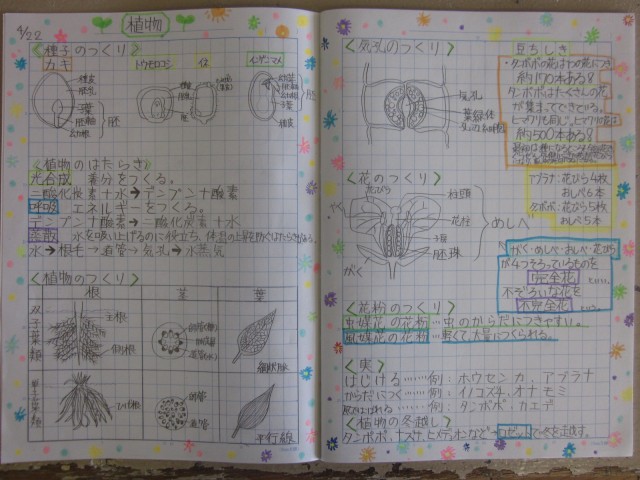 4/22
植物
<種子のつくり>
カキ
トウモロコシ
イネ
インゲンマメ
種皮
胚乳
子葉
胚軸
幼根
胚
<植物のはたらき>
光合成 養分をつくる。
二酸化炭素+水→デンプン+酸素
呼吸 エネルギーをつくる。
デンプン+酸素→二酸化炭素+水
蒸散 水を吸い上げるのに役立ち、体温の上昇を防ぐはたらきがある。
水→根毛→道管→気孔→水蒸気
<植物のつくり>
根 茎 葉
双子葉類
主根
側根
網状脈
単子葉類
ひげ根
師管
道管
平行脈
<気孔のつくり>
気孔
葉緑体
豆ちしき
・タンポポの花は1つの花につき
約170本ある!
タンポポはたくさんの花
が集まってできている。
ヒマワリも同じ。ヒマワリの花は
約500本ある!
<花のつくり>
花びら
柱頭
やく
花柱
めしべ
子房
胚珠
がく
アブラナ:花びら4枚
おしべ6本
タンポポ:花びら5枚
おしべ5本
がく・めしべ・おしべ・花びら
が4つそろっているものを
完全花 という。
不ぞろいな花を
不完全花 という。
<花粉のつくり>
虫媒花の花粉…虫のからだにつきやすい。
風媒花の花粉…軽くて、大量につくられる。
<実>
はじける……例:ホウセンカ、アブラナ
からだにつく…例:イノコズチ、オナモミ
風にはこばれる…例:タンポポ、カエデ
<植物の冬越し>
タンポポ、ナズナ、ヒメジョオンなど→ロゼットで冬を越す。